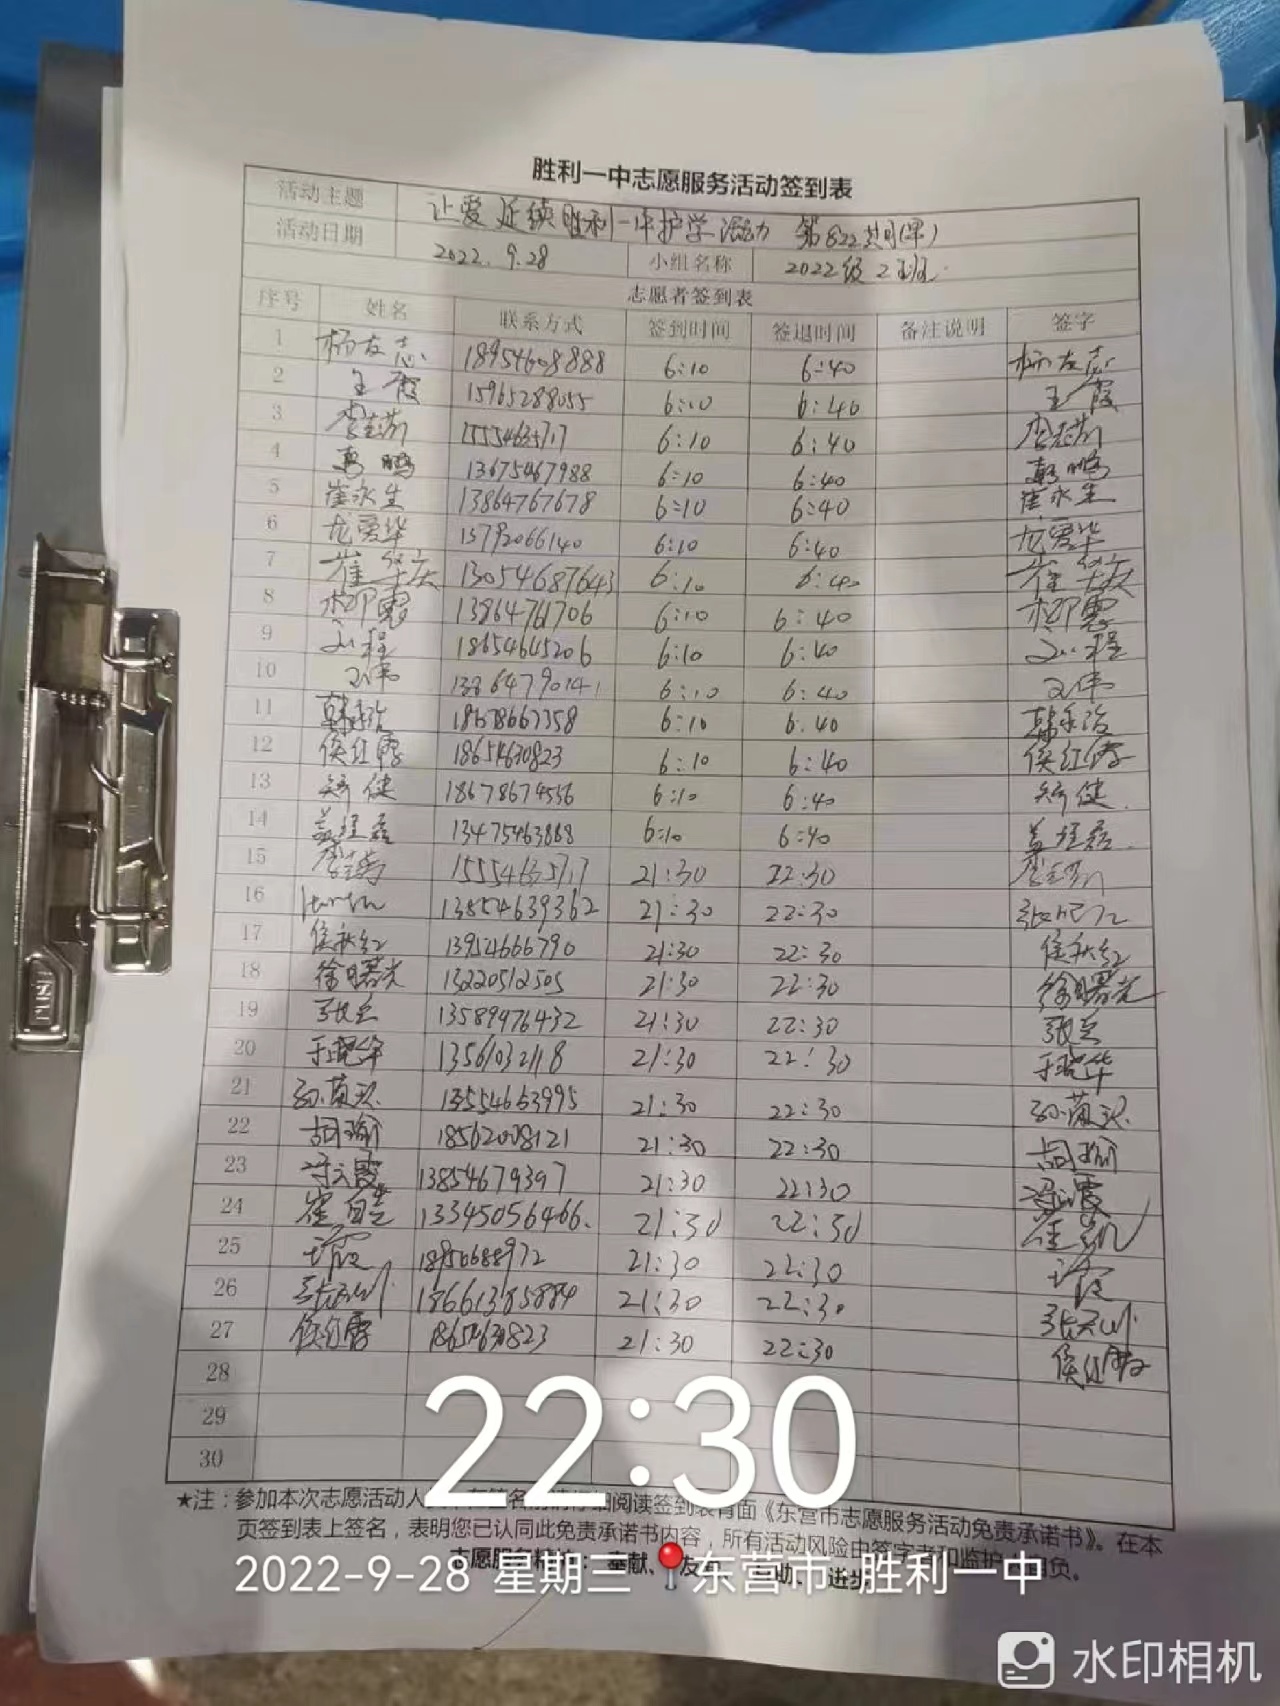 胜利一中志愿服务活动签到表
活动主题 让爱延续胜利一中护学活动 第822期(早)
活动日期 2022.9.28 小组名称 2022级2班
志愿者签到表
序号 姓名 联系方式 签到时间 签退时间 备注说明 签字
1 杨友志 18954608888 6:10 6:40 杨友志
2 王霞 15965288055 6:10 6:40 王霞
3 15554635717 6:10 6:40
4 13675467988 6:10 6:40
5 崔永生 13864767678 6:10 6:40 崔永生
6 龙爱华 13792066140 6:10 6:40 龙爱华
7 崔华庆 13054687643 6:10 6:40 崔华庆
8 柳霞 13864761706 6:10 6:40 柳霞
9 18654645206 6:10 6:40
10 6:10 6:40
11 18678667358 6:10 6:40
12 侯红霞 18654630823 6:10 6:40 侯红霞
13 矫健 18678674536 6:10 6:40 矫健
14 盖经磊 13475463888 6:10 6:40 盖经磊
15 15554635717 21:30 22:30
16 13854639362 21:30 22:30
17 侯秋红 13954666790 21:30 22:30 侯秋红
18 徐曙光 13220512505 21:30 22:30 徐曙光
19 张兵 13589976432 21:30 22:30 张兵
20 于晓华 13561032118 21:30 22:30 于晓华
21 13554663995 21:30 22:30
22 胡瑜 18562008121 21:30 22:30 胡瑜
23 13854679397 21:30 22:30
24 13345056466 21:30 22:30
25 21:30 22:30
26 18661385884 21:30 22:30
27 侯红霞 18654630823 21:30 22:30 侯红霞
28
29
30
22:30
★注：参加本次志愿活动人 阅读签到表背面《东营市志愿服务活动免责承诺书》。在本
页签到表上签名，表明您已认同此免责承诺书内容，所有活动风险由签字者和监护 自负。
志愿服务精神：奉献、友 助、进步
2022-9-28 星期三 东营市·胜利一中
水印相机